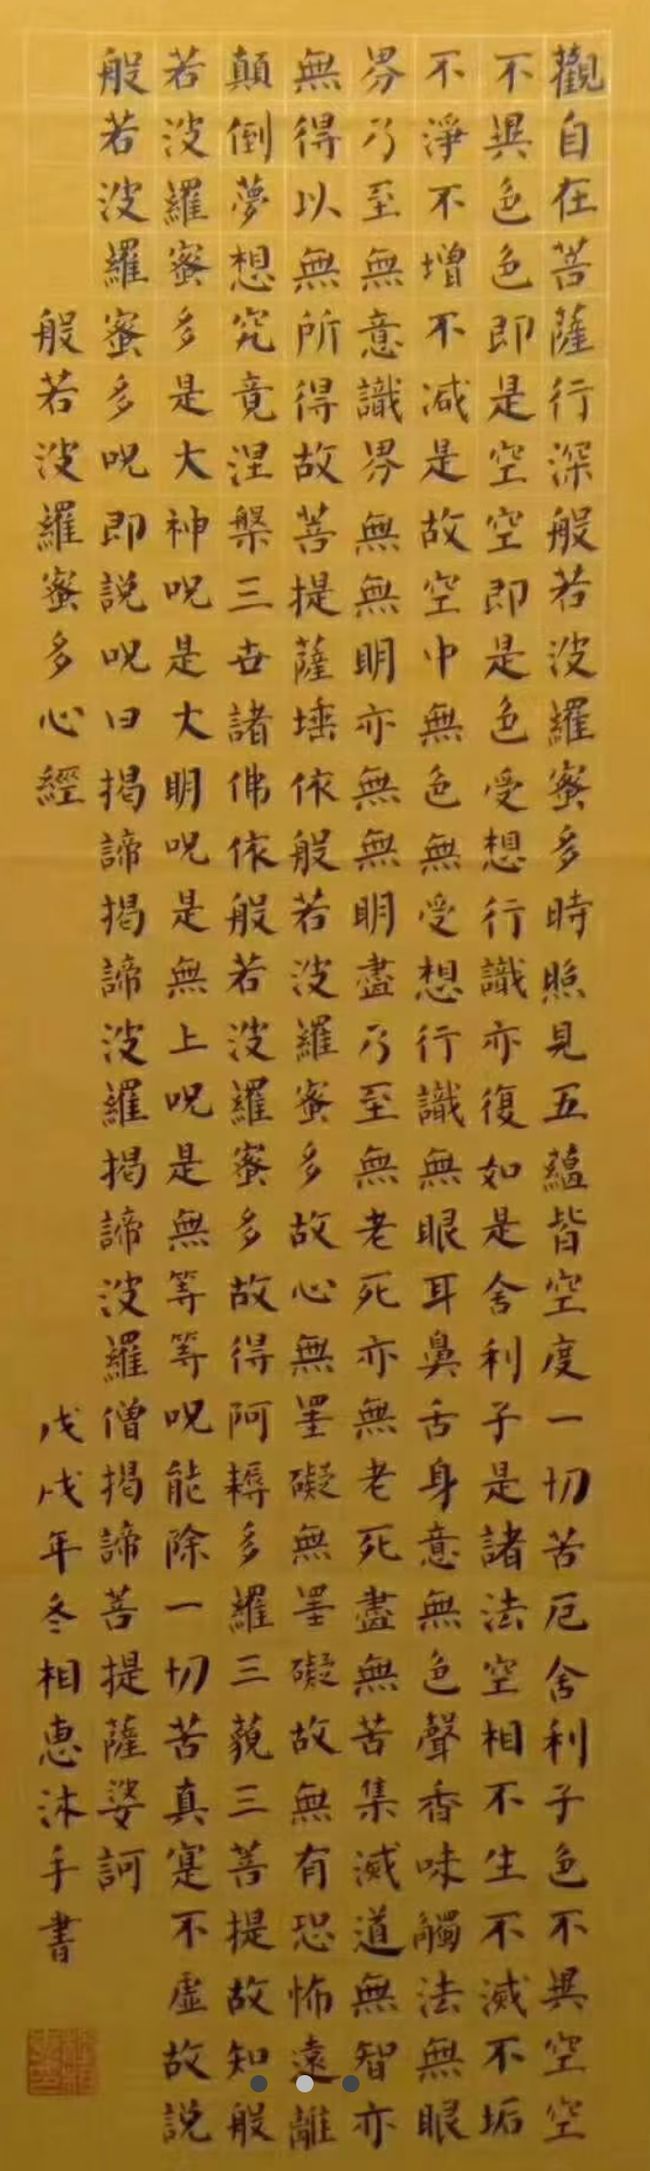 觀自在菩薩行深般若波羅蜜多時照見五蘊皆空度一切苦厄舍利子色不異空空
不異色色即是空空即是色受想行識亦復如是舍利子是諸法空相不生不滅不垢
不淨不增不減是故空中無色無受想行識無眼耳鼻舌身意無色聲香味觸法無眼
界乃至無意識界無無明亦無無明盡乃至無老死亦無老死盡無苦集滅道無智亦
無得以無所得故菩提薩埵依般若波羅蜜多故心無罣礙無罣礙故無有恐怖遠離
顛倒夢想究竟涅槃三世諸佛依般若波羅蜜多故得阿耨多羅三藐三菩提故知般
若波羅蜜多是大神呪是大明呪是無上呪是無等等呪能除一切苦真寔不虛故說
般若波羅蜜多呪即說呪曰揭諦揭諦波羅揭諦波羅僧揭諦菩提薩婆訶
般若波羅蜜多心經 戊戌年冬相惠沐手書